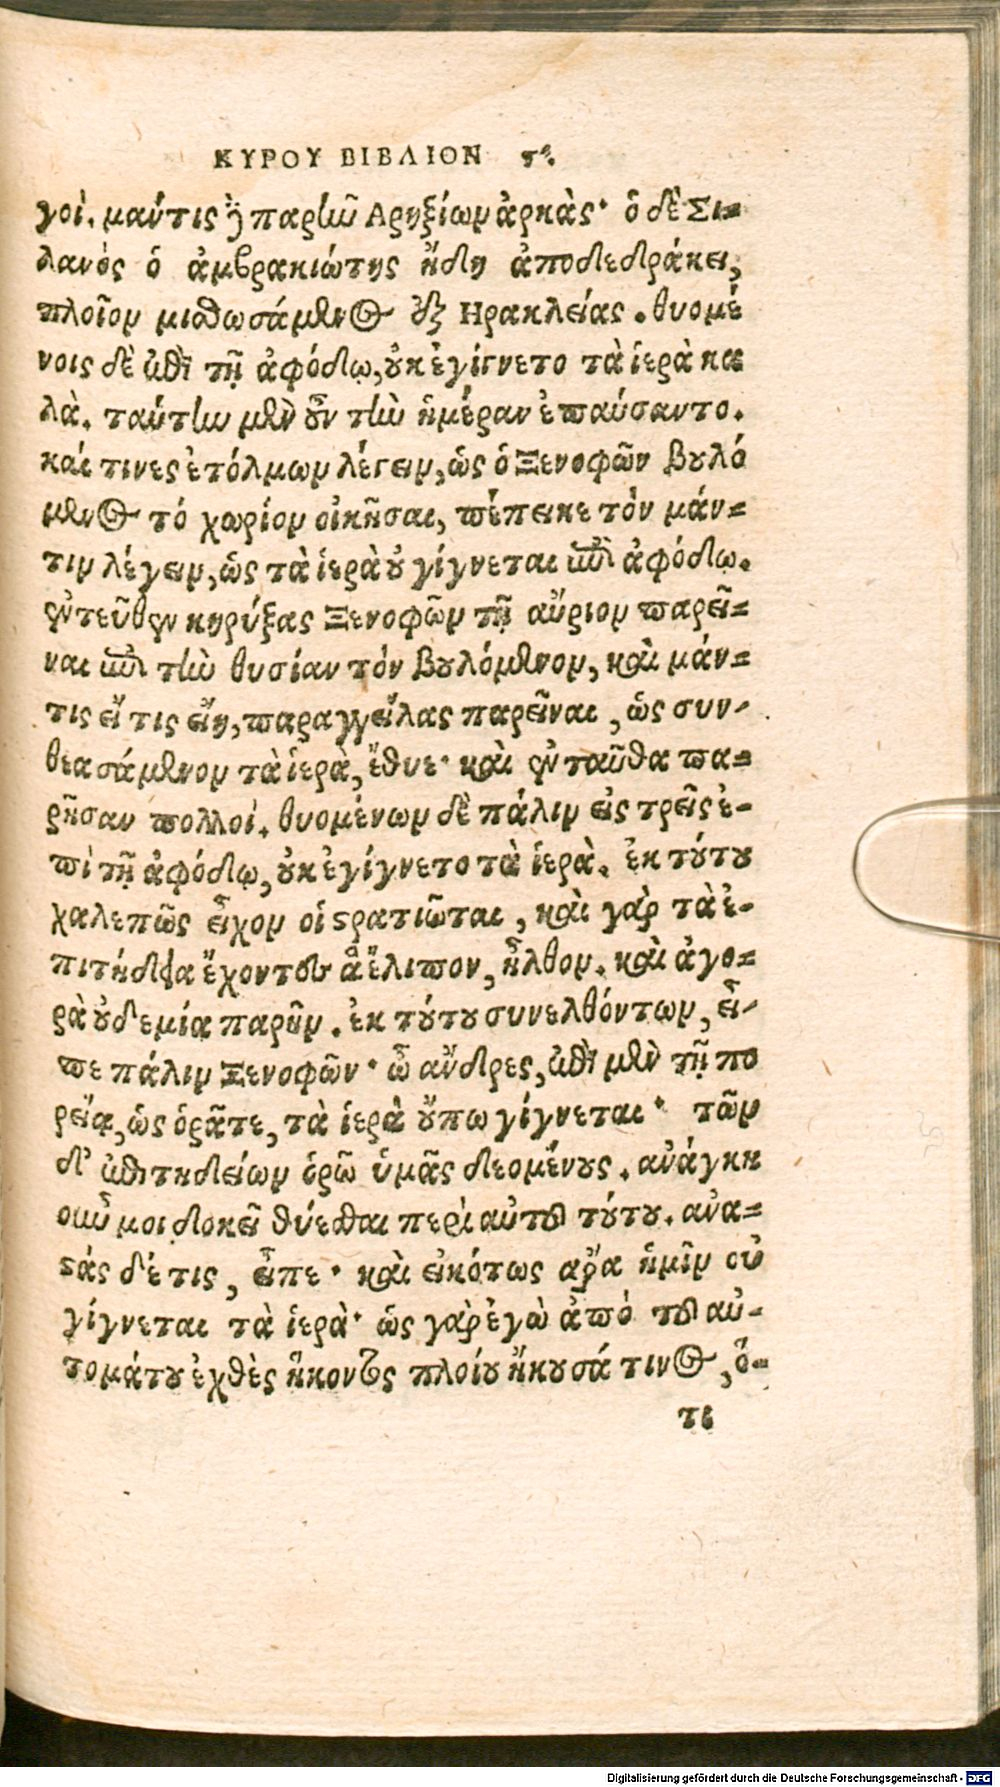 ΚΥΡΟΥ ΒΙΒΛΙΟΝ ϛʹ.
γοί. μάντις ἦν παρῆν Αρηξίων ἀρκὰς· ὁ δὲ Σι-
λανὸς ὁ ἀμβρακιώτης ἤδη ἀποδεδράκει,
πλοῖον μισθωσάμενος ἐξ Ηρακλείας. θυομέ
νοις δὲ ἐπὶ τῇ ἀφόδῳ, οὐκ ἐγίγνετο τὰ ἱερὰ κα
λὰ. ταύτην μὲν οὖν τὴν ἡμέραν ἐπαύσαντο.
καί τινες ἐτόλμων λέγειν, ὡς ὁ Ξενοφῶν βουλό
μενος τό χωρίον οἰκῆσαι, πέπεικε τὸν μάν-
τιν λέγειν, ὡς τὰ ἱερὰ οὐ γίγνεται ἐπὶ ἀφόδῳ.
ἐντεῦθεν κηρύξας Ξενοφῶν τῇ αὔριον παρεῖ-
ναι ἐπὶ τὴν θυσίαν τὸν βουλόμενον, καὶ μάν-
τις εἴ τις εἴη, παραγγείλας παρεῖναι, ὡς συν-
θεασάμενον τὰ ἱερὰ, ἔθυε· καὶ ἐνταῦθα πα-
ρῆσαν πολλοί. θυομένων δὲ πάλιν εἰς τρεῖς ἐ-
πὶ τῇ ἀφόδῳ, οὐκ ἐγίγνετο τὰ ἱερὰ. ἐκ τούτου
χαλεπῶς εἶχον οἱ στρατιῶται, καὶ γὰρ τὰ ἐ-
πιτήδεια ἔχοντες ἃ ἔλιπον, ἦλθον. καὶ ἀγο-
ρὰ οὐδεμία παρῆν. ἐκ τούτου συνελθόντων, εἶ-
πε πάλιν Ξενοφῶν· ὦ ἄνδρες, ἐπὶ μὲν τῇ πο
ρείᾳ, ὡς ὁρᾶτε, τὰ ἱερὰ οὔπω γίγνεται· τῶν
δ' ἐπιτηδείων ὁρῶ ὑμᾶς δεομένους. ἀνάγκη
οὖν μοι δοκεῖ θύεσθαι περὶ αὐτοῦ τούτου. ἀνα-
στάς δέ τις, εἶπε· καὶ εἰκότως ἄρα ἡμῖν οὐ
γίγνεται τὰ ἱερὰ· ὡς γὰρ ἐγὼ ἀπὸ τοῦ αὐ-
τομάτου ἐχθὲς ἥκοντος πλοίου ἤκουσά τινος, ὅ-
τι
Digitalisierung gefördert durch die Deutsche Forschungsgemeinschaft - DFG